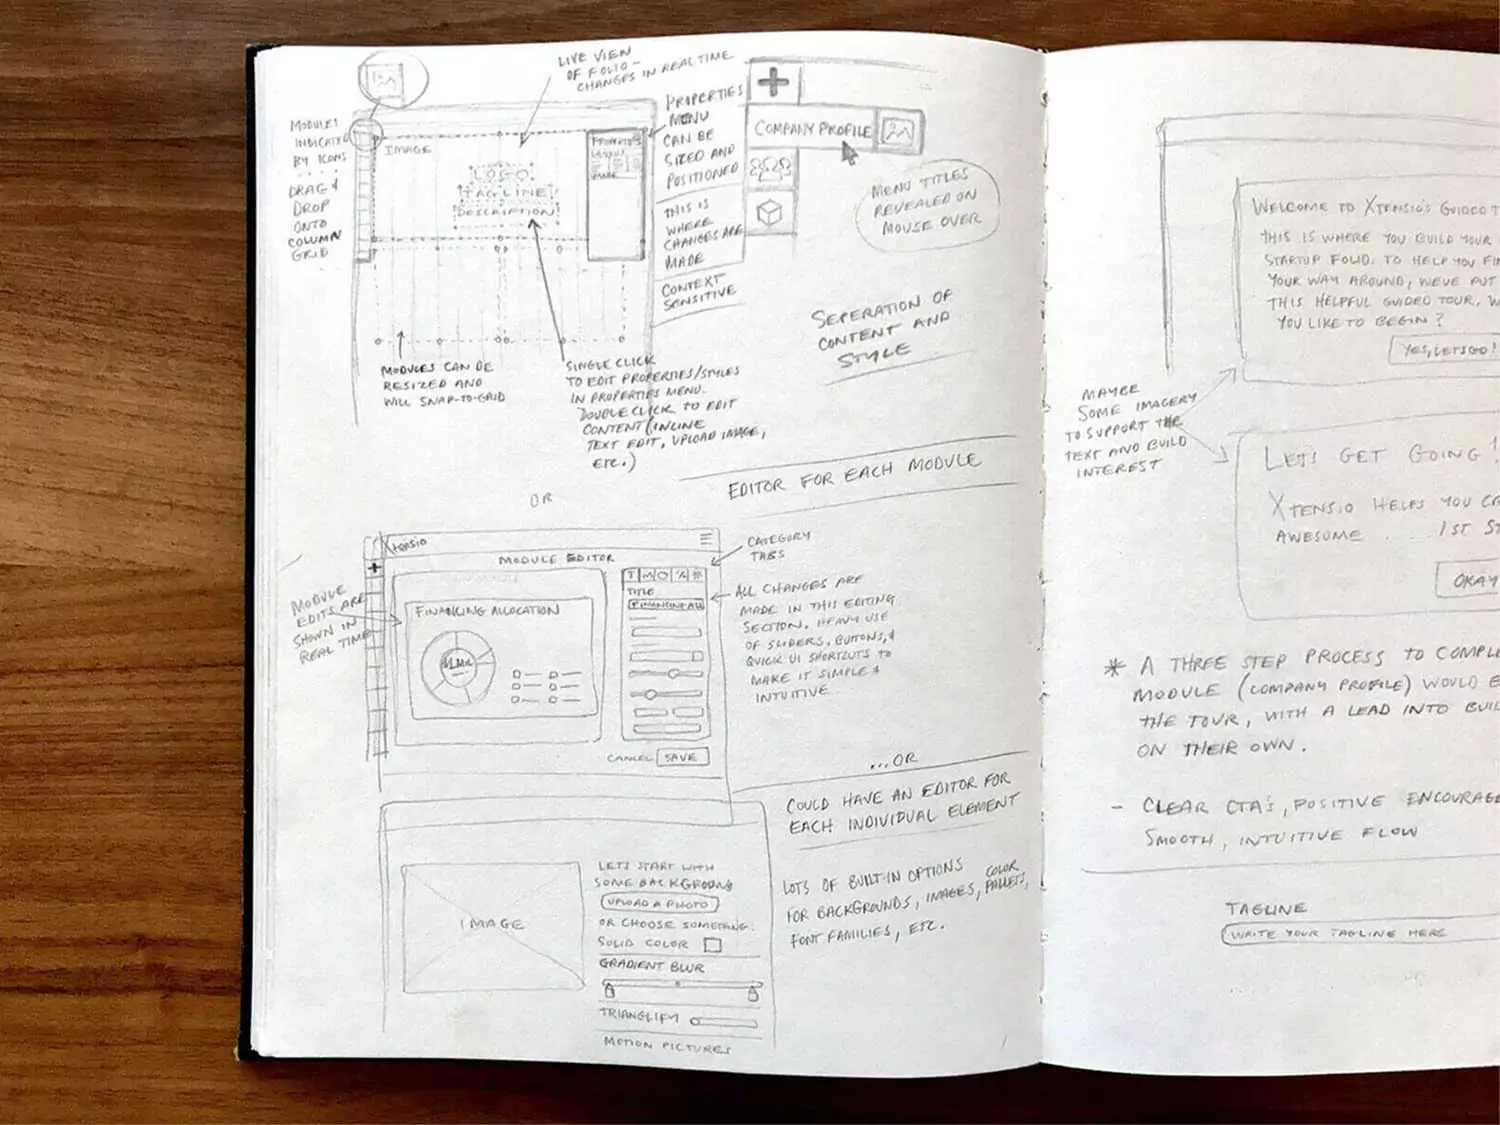 LIVE VIEW
OF FOLIO –
CHANGES IN REAL TIME
MODULES
INDICATED
BY ICONS
DRAG &
DROP
ONTO
COLUMN
GRID
IMAGE
LOGO
TAGLINE
DESCRIPTION
PROPERTIES
PROPERTIES
MENU
CAN BE
SIZED AND
POSITIONED
THIS IS
WHERE
CHANGES ARE
MADE
CONTEXT
SENSITIVE
COMPANY PROFILE
MENU TITLES
REVEALED ON
MOUSE OVER
SEPERATION OF
CONTENT AND
STYLE
MODULES CAN BE
RESIZED AND
WILL SNAP-TO-GRID
SINGLE CLICK
TO EDIT PROPERTIES/STYLES
IN PROPERTIES MENU.
DOUBLE CLICK TO EDIT
CONTENT (INLINE
TEXT EDIT, UPLOAD IMAGE,
ETC.)
EDITOR FOR EACH MODULE
OR
Xtensio
MODULE EDITOR
CATEGORY
TABS
MODULE
EDITS ARE
SHOWN IN
REAL TIME
FINANCING ALLOCATION
TITLE
FINANCING ALL
ALL CHANGES ARE
MADE IN THIS EDITING
SECTION. HEAVY USE
OF SLIDERS, BUTTONS, &
QUICK UI SHORTCUTS TO
MAKE IT SIMPLE &
INTUITIVE
CANCEL SAVE
...OR
COULD HAVE AN EDITOR FOR
EACH INDIVIDUAL ELEMENT
IMAGE
LETS START WITH
SOME BACKGROUND
UPLOAD A PHOTO
OR CHOOSE SOMETHING:
SOLID COLOR
GRADIENT BLUR
TRIANGLIFY
MOTION PICTURES
LOTS OF BUILT-IN OPTIONS
FOR BACKGROUNDS, IMAGES, COLOR PALLETS,
FONT FAMILIES, ETC.
WELCOME TO XTENSIO'S GUIDED T
THIS IS WHERE YOU BUILD YOUR
STARTUP FOLIO. TO HELP YOU FI
YOUR WAY AROUND, WE'VE PUT
THIS HELPFUL GUIDED TOUR. W
YOU LIKE TO BEGIN?
YES, LETS GO!
MAYBE
SOME IMAGERY
TO SUPPORT THE
TEXT AND BUILD
INTEREST
LETS GET GOING!
XTENSIO HELPS YOU C
AWESOME . . . . 1ST ST
OKAY
* A THREE STEP PROCESS TO COMPLE
MODULE (COMPANY PROFILE) WOULD E
THE TOUR, WITH A LEAD INTO BUIL
ON THEIR OWN.
– CLEAR CTA'S, POSITIVE ENCOURAGE
SMOOTH, INTUITIVE FLOW
TAGLINE
WRITE YOUR TAGLINE HERE